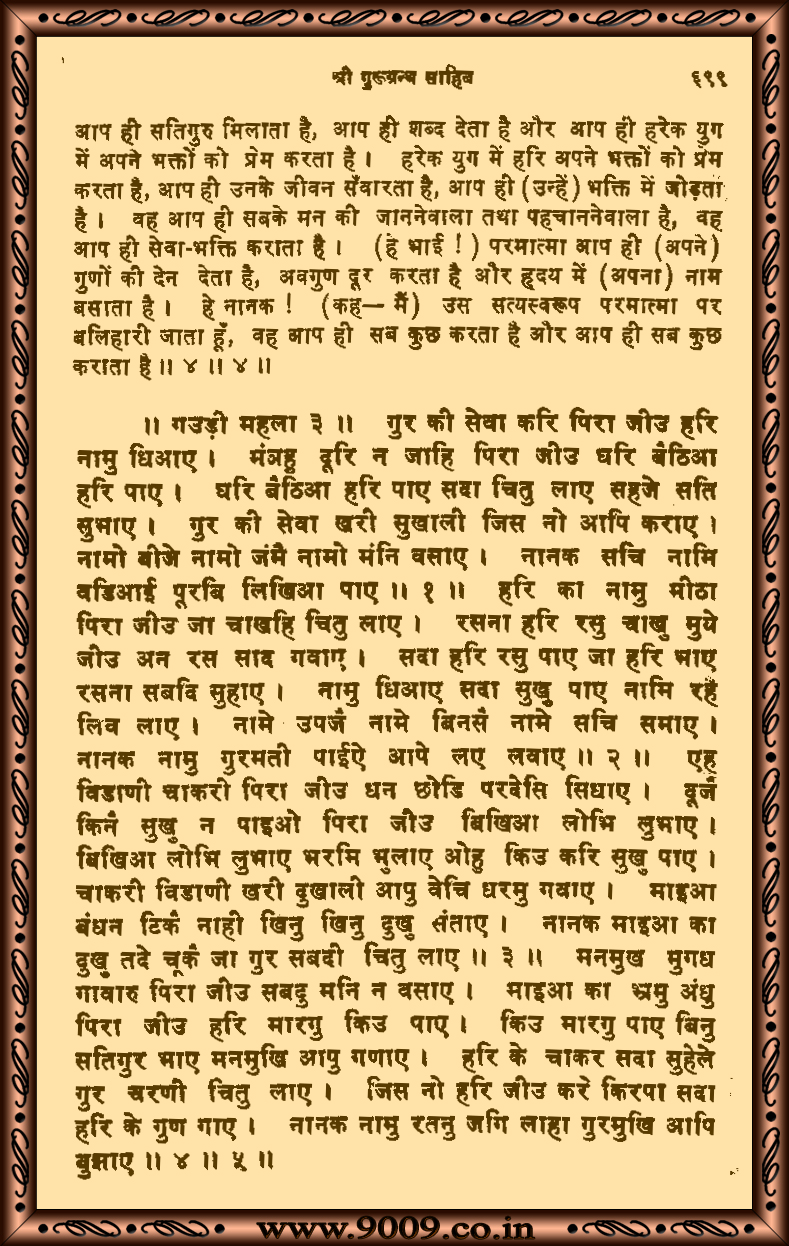 श्री गुरूग्रन्थ साहिब ६९९
आप ही सतिगुरु मिलाता है, आप ही शब्द देता है और आप ही हरेक युग
में अपने भक्तों को प्रेम करता है। हरेक युग में हरि अपने भक्तों को प्रेम
करता है, आप ही उनके जीवन सँवारता है, आप ही (उन्हें) भक्ति में जोड़ता
है। वह आप ही सबके मन की जाननेवाला तथा पहचाननेवाला है, वह
आप ही सेवा-भक्ति कराता है। (हे भाई !) परमात्मा आप ही (अपने)
गुणों की देन देता है, अवगुण दूर करता है और हृदय में (अपना) नाम
बसाता है। हे नानक ! (कह— मैं) उस सत्यस्वरूप परमात्मा पर
बलिहारी जाता हूँ, वह आप ही सब कुछ करता है और आप ही सब कुछ
कराता है॥ ४॥ ४॥
॥ गउड़ी महला ३॥ गुर की सेवा करि पिरा जीउ हरि
नामु धिआए। मंञहु दूरि न जाहि पिरा जीउ घरि बैठिआ
हरि पाए। घरि बैठिआ हरि पाए सदा चितु लाए सहजे सति
सुभाए। गुर की सेवा खरी सुखाली जिस नो आपि कराए।
नामो बीजे नामो जंमै नामो मंनि वसाए। नानक सचि नामि
वडिआई पूरबि लिखिआ पाए॥ १॥ हरि का नामु मीठा
पिरा जीउ जा चाखहि चितु लाए। रसना हरि रसु चाखु मुये
जीउ अन रस साद गवाए। सदा हरि रसु पाए जा हरि भाए
रसना सबदि सुहाए। नामु धिआए सदा सुखु पाए नामि रहै
लिव लाए। नामे उपजै नामे बिनसै नामे सचि समाए।
नानक नामु गुरमती पाईऐ आपे लए लवाए॥ २॥ एह
विडाणी चाकरी पिरा जीउ धन छोडि परदेसि सिधाए। दूजै
किनै सुखु न पाइओ पिरा जीउ बिखिआ लोभि लुभाए।
बिखिआ लोभि लुभाए भरमि भुलाए ओहु किउ करि सुखु पाए।
चाकरी विडाणी खरी दुखाली आपु वेचि धरमु गवाए। माइआ
बंधन टिकै नाही खिनु खिनु दुखु संताए। नानक माइआ का
दुखु तदे चूकै जा गुर सबदी चितु लाए॥ ३॥ मनमुख मुगध
गावारु पिरा जीउ सबदु मनि न वसाए। माइआ का भ्रमु अंधु
पिरा जीउ हरि मारगु किउ पाए। किउ मारगु पाए बिनु
सतिगुर भाए मनमुखि आपु गणाए। हरि के चाकर सदा सुहेले
गुर चरणी चितु लाए। जिस नो हरि जीउ करे किरपा सदा
हरि के गुण गाए। नानक नामु रतनु जगि लाहा गुरमुखि आपि
बुझाए॥ ४॥ ५॥
www.9009.co.in